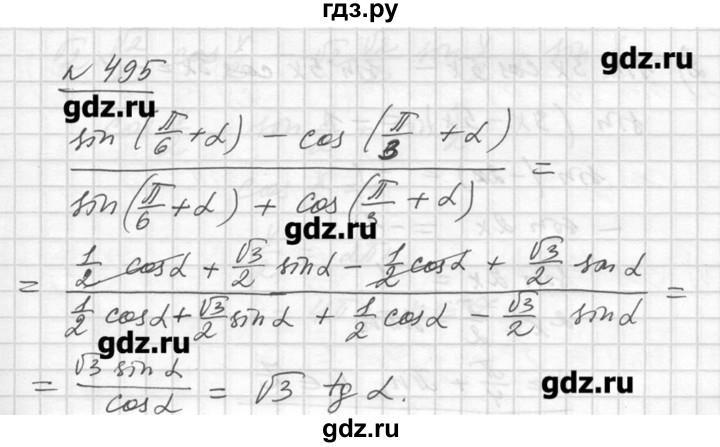 гдз.ру
N 495
gdz.ru
gdz.ru
sin (π/6 + α) − cos (π/3 + α)
=
sin (π/6 + α) + cos (π/3 + α)
gdz.ru
= 1/2 cos α + √3/2 sin α − 1/2 cos α + √3/2 sin α
=
1/2 cos α + √3/2 sin α + 1/2 cos α − √3/2 sin α
gdz.ru
= √3 sin α / cos α = √3 tg α.
gdz.ru
гдз.ру